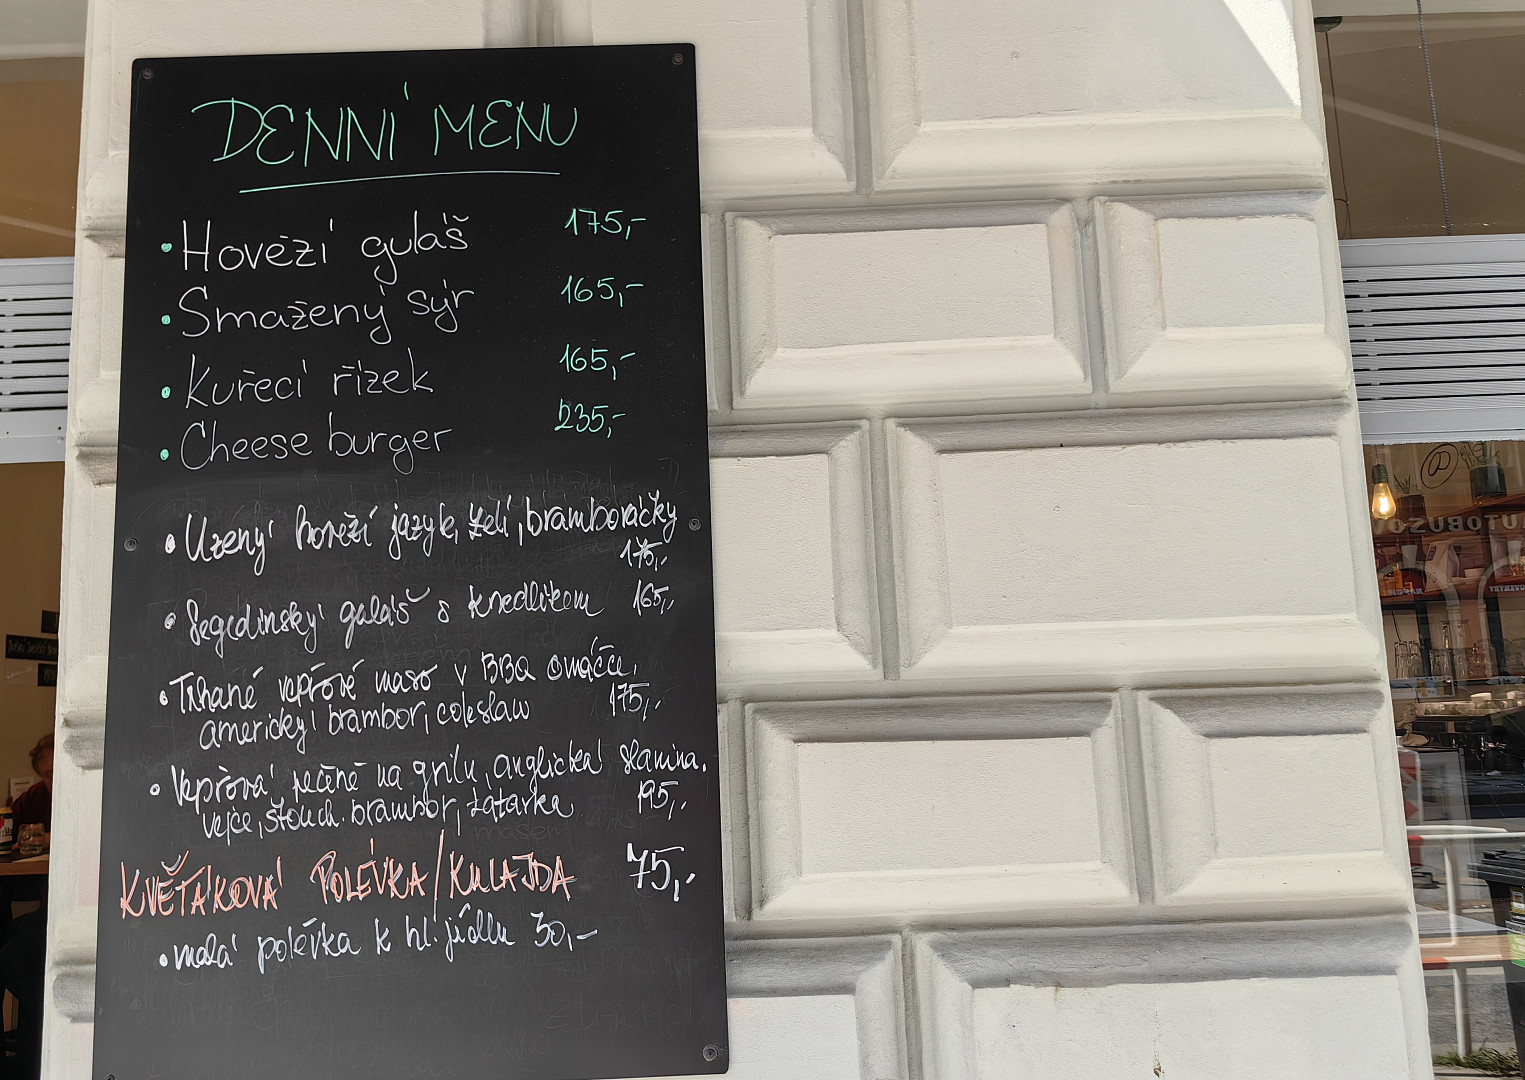 DENNÍ MENU
• Hovězí guláš 175,-
• Smažený sýr 165,-
• Kuřecí řízek 165,-
• Cheese burger 235,-
• Uzený hovězí jazyk, zelí, bramboráčky
175,-
• Segedínský guláš s knedlíkem 165,-
• Trhané vepřové maso v BBQ omáčce,
americký brambor, coleslaw 175,-
• Vepřová pečeně na grilu, anglická slanina,
vejce, štouch. brambor, tatarka 195,-
KVĚTÁKOVÁ POLÉVKA/KULAJDA 75,-
• malá polévka k hl. jídlu 30,-